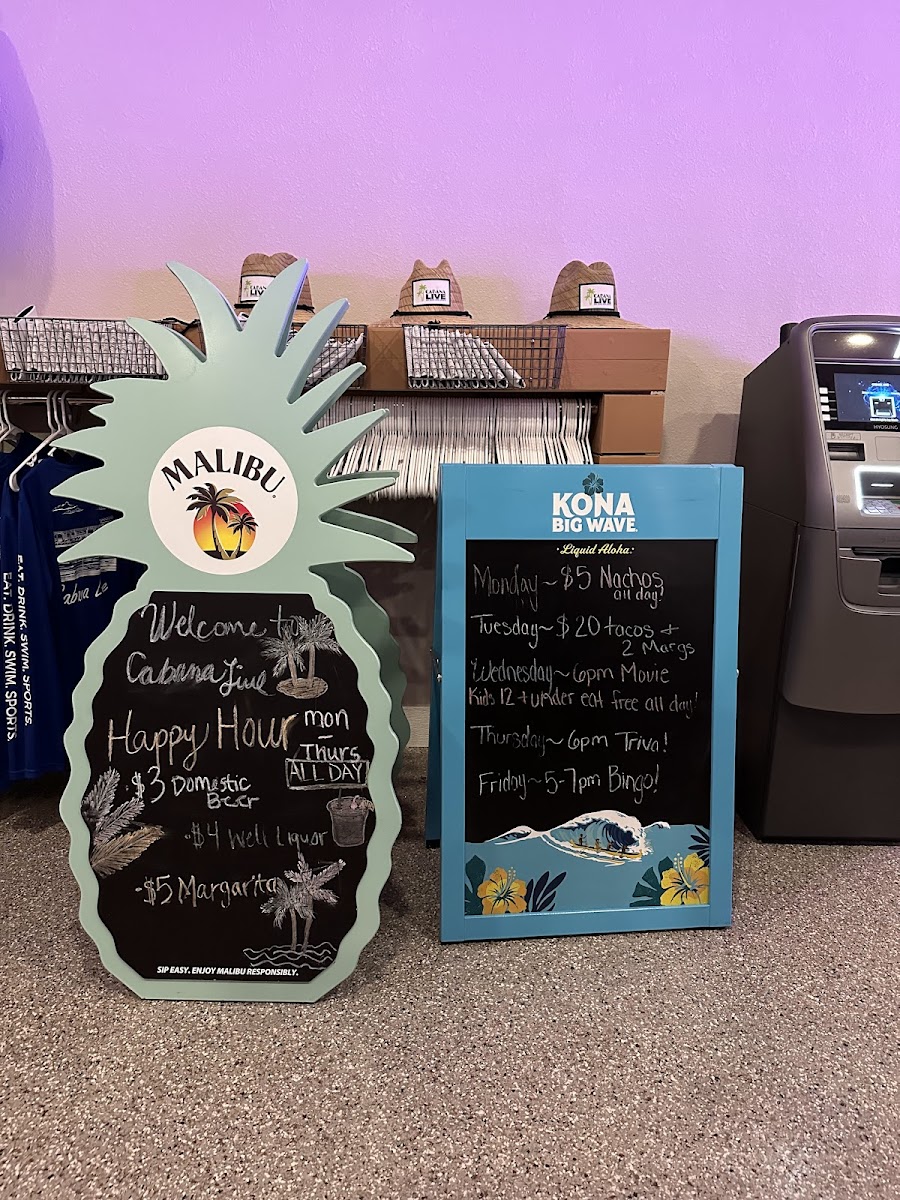 CABANA
LIVE
CABANA
LIVE
CABANA
LIVE
MALIBU
Welcome to
Cabana Live
Happy Hour
mon
-
Thurs
ALL DAY
·$3 Domestic
Beer
·$4 Well Liquor
·$5 Margarita
SIP EASY. ENJOY MALIBU RESPONSIBLY.
KONA
BIG WAVE
·Liquid Aloha·
Monday~$5 Nachos
all day!
Tuesday~$20 tacos +
2 Margs
Wednesday~6pm Movie
Kids 12 + under eat free all day!
Thursday~6pm Triva!
Friday~5-7pm Bingo!
EAT. DRINK. SWIM. SPORTS.
EAT. DRINK. SWIM. SPORTS.
HYOSUNG